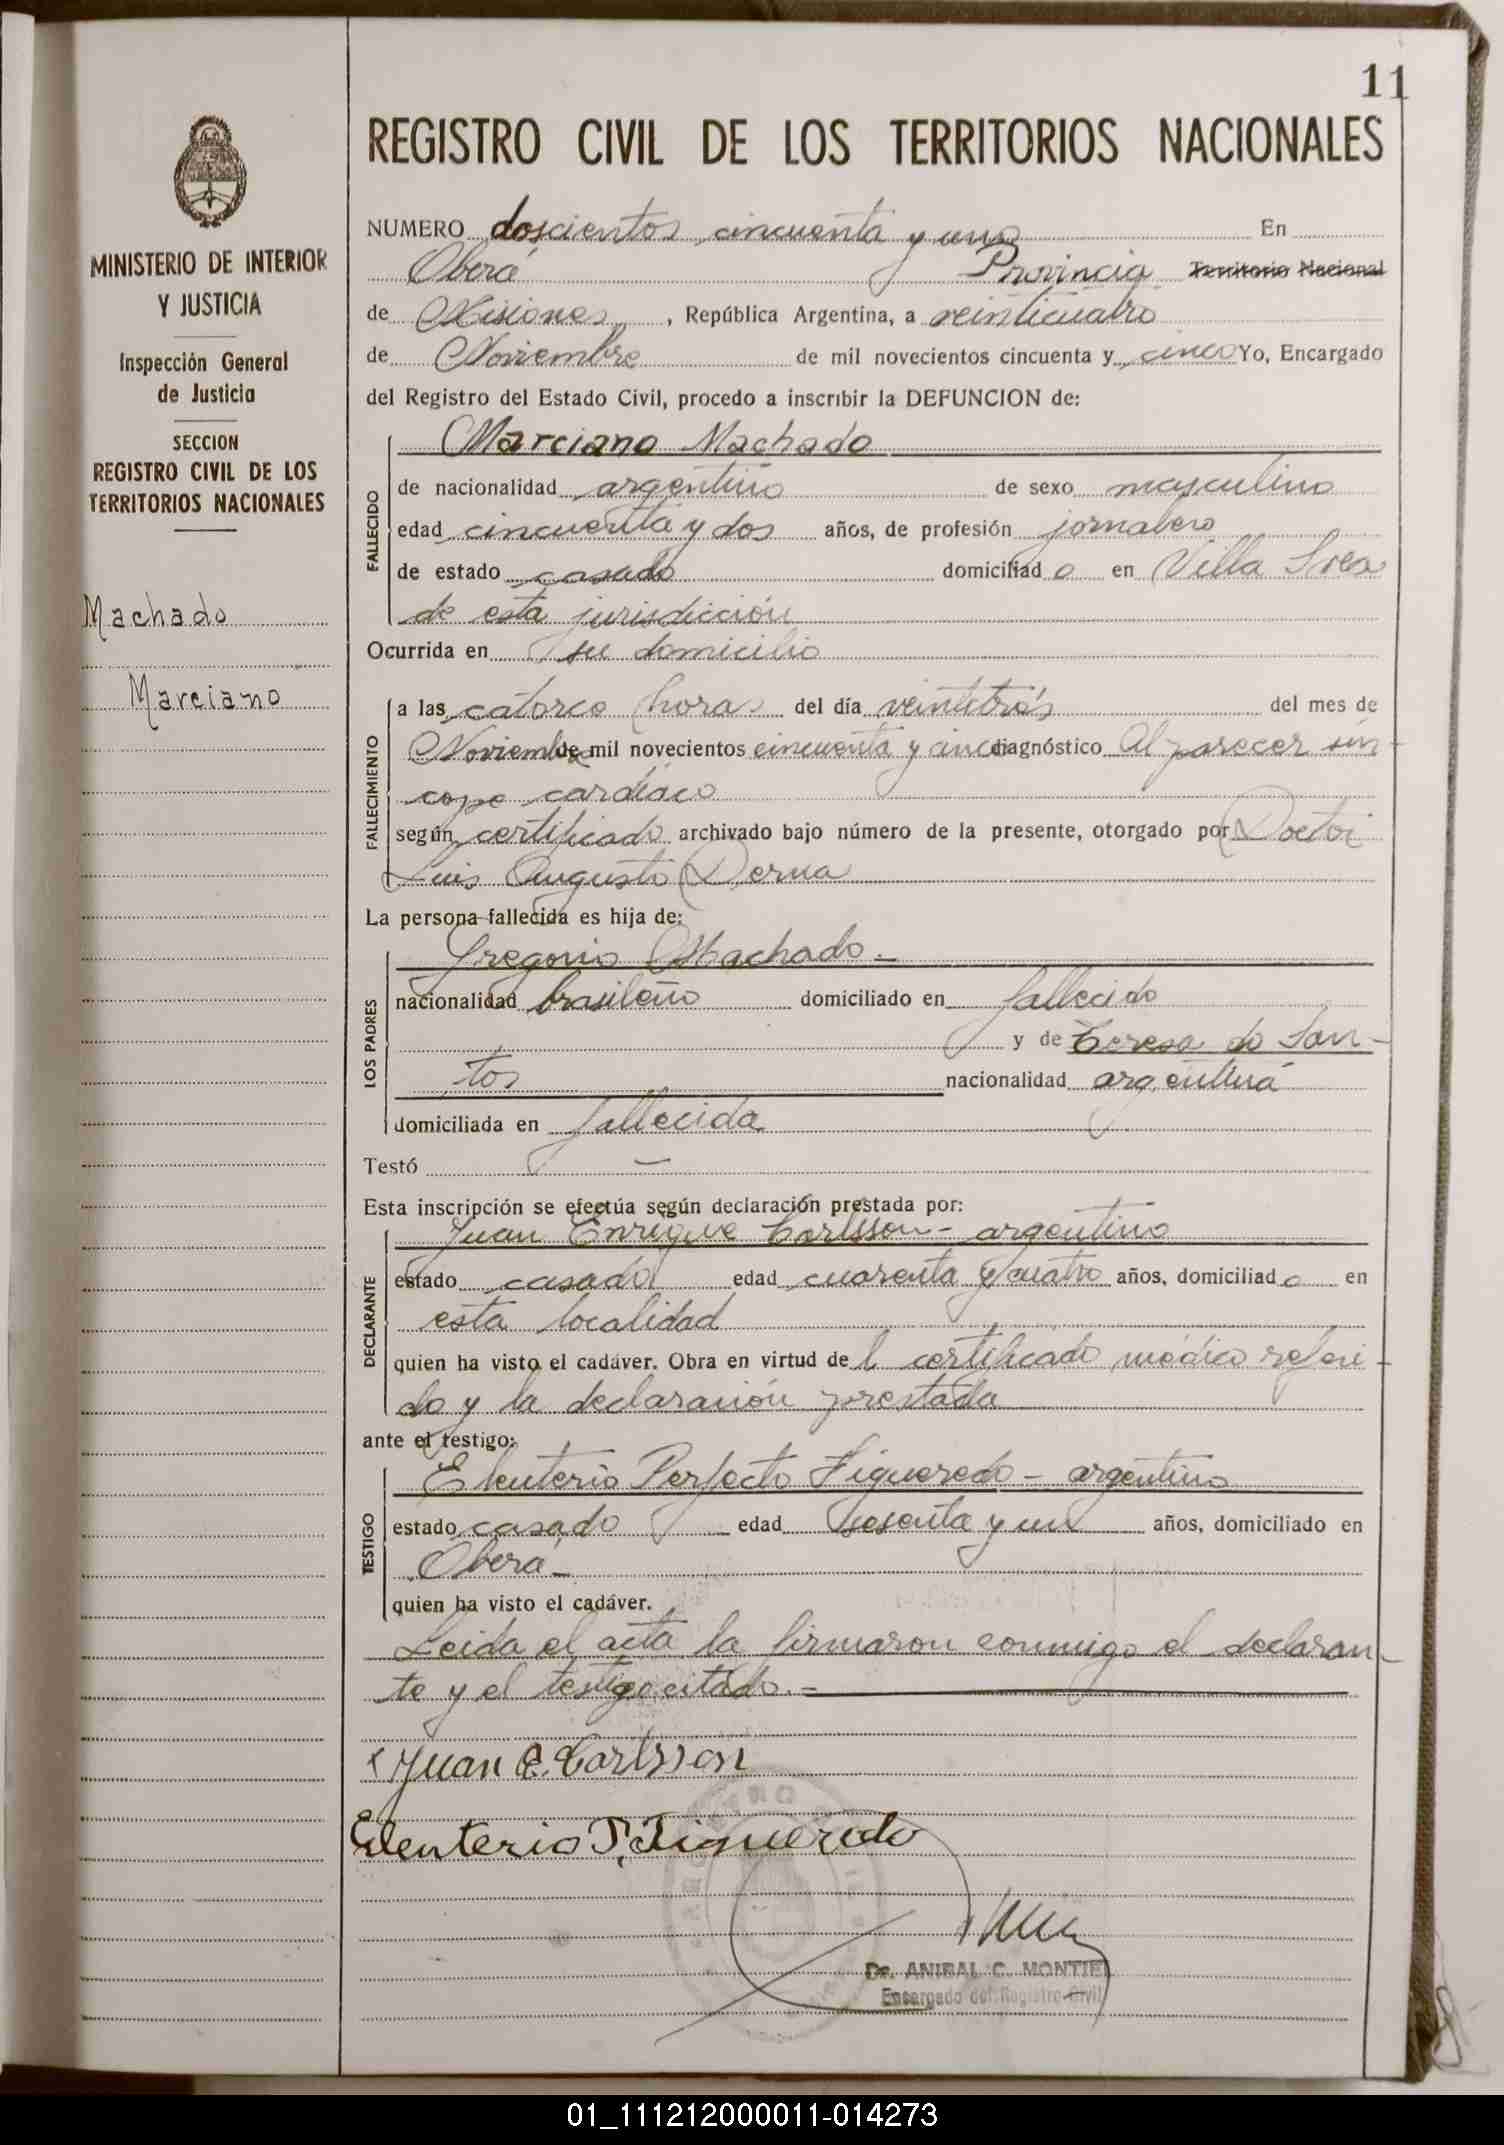 11
REGISTRO CIVIL DE LOS TERRITORIOS NACIONALES
MINISTERIO DE INTERIOR
Y JUSTICIA
Inspección General
de Justicia
SECCION
REGISTRO CIVIL DE LOS
TERRITORIOS NACIONALES
Machado
Marciano
NUMERO doscientos cincuenta y uno En
Oberá Provincia Territorio Nacional
de Misiones, República Argentina, a veinticuatro
de Noviembre de mil novecientos cincuenta y cinco Yo, Encargado
del Registro del Estado Civil, procedo a inscribir la DEFUNCION de:
FALLECIDO
Marciano Machado
de nacionalidad argentino de sexo masculino
edad cincuenta y dos años, de profesión jornalero
de estado casado domiciliado en Villa Svea
de esta jurisdicción
Ocurrida en su domicilio
FALLECIMIENTO
a las catorce horas del día veintitrés del mes de
Noviembre de mil novecientos cincuenta y cinco diagnóstico Al parecer sín-
cope cardíaco
según certificado archivado bajo número de la presente, otorgado por Doctor
Luis Augusto Derna
La persona fallecida es hija de:
LOS PADRES
Gregorio Machado.-
nacionalidad brasileño domiciliado en fallecido
y de Teresa do San-
tos nacionalidad argentina
domiciliada en fallecida
Testó -
Esta inscripción se efectúa según declaración prestada por:
DECLARANTE
Juan Enrique Carlsson - argentino
estado casado edad cuarenta y cuatro años, domiciliado en
esta localidad
quien ha visto el cadáver. Obra en virtud del certificado médico referi-
do y la declaración prestada
ante el testigo:
TESTIGO
Eleuterio Perfecto Figueredo - argentino
estado casado edad sesenta y un años, domiciliado en
Oberá-
quien ha visto el cadáver.
Leida el acta la firmaron conmigo el declaran-
te y el testigo citado.-
Juan E. Carlsson
Eleuterio P. Figueredo
Dr. ANIBAL C. MONTIEL
Encargado del Registro Civil
01_111212000011-014273